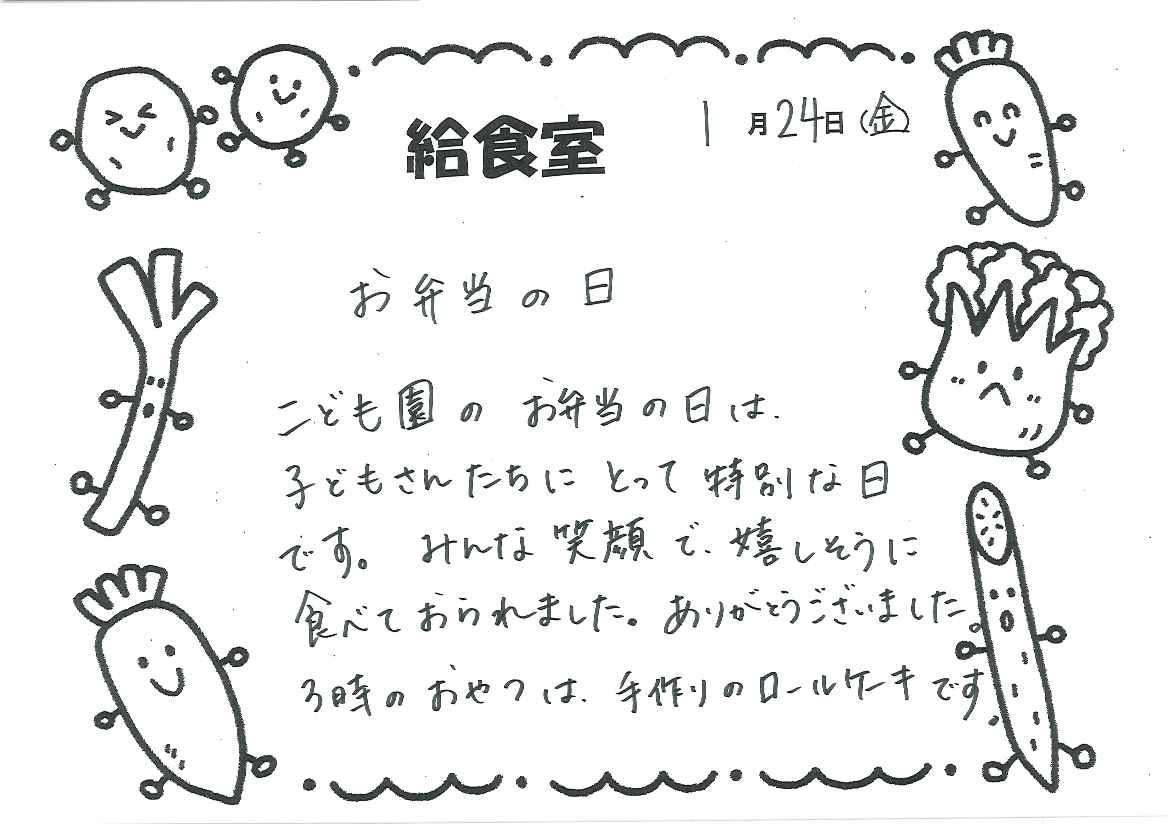 給食室
1月24日(金)
お弁当の日
こども園のお弁当の日は、
子どもさんたちにとって特別な日
です。みんな笑顔で、嬉しそうに
食べておられました。ありがとうございました。
3時のおやつは、手作りのロールケーキです。